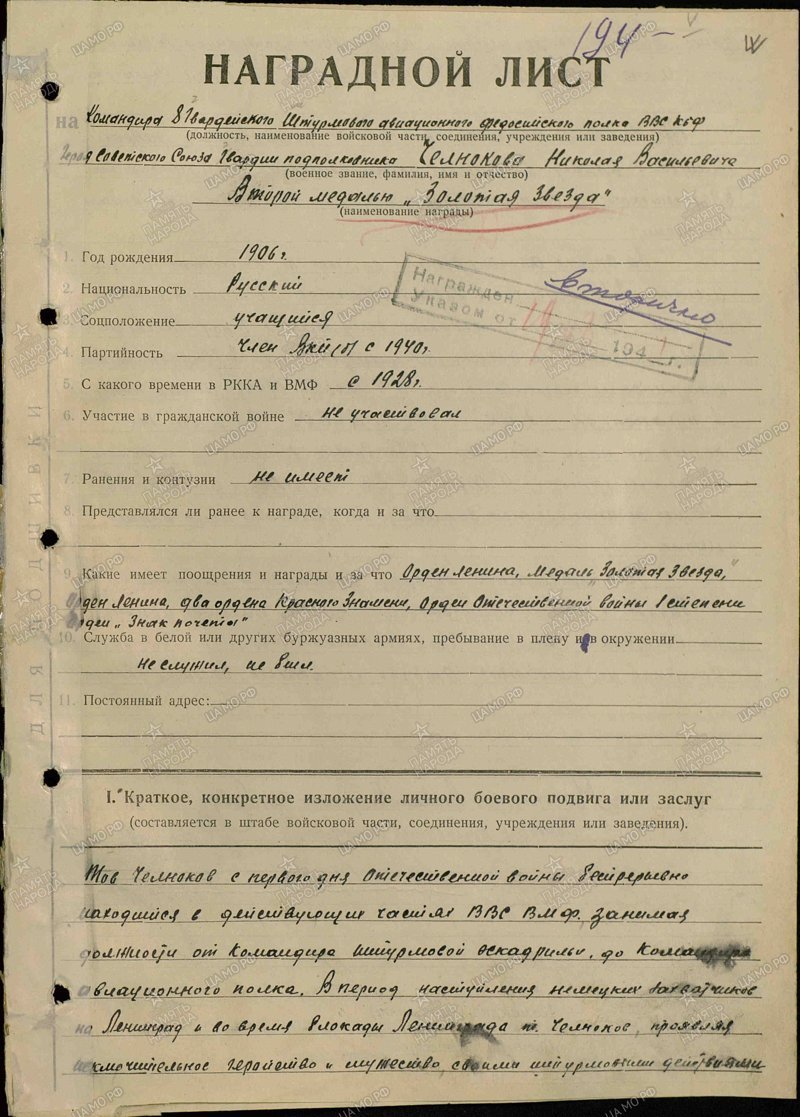 194 —
НАГРАДНОЙ ЛИСТ
на Командира 8 Гвардейского Штурмового авиационного Феодосийского полка ВВС КБФ
(должность, наименование войсковой части, соединения, учреждения или заведения)
Героя Советского Союза Гвардии подполковника Челнокова Николая Васильевича
(военное звание, фамилия, имя и отчество)
Второй медалью „Золотая Звезда"
(наименование награды)
1. Год рождения 1906 г.
Награжден вторично
2. Национальность Русский
Указом от 194 г.
3. Соцположение учащийся
4. Партийность член ВКП(б) с 1940 г.
5. С какого времени в РККА и ВМФ с 1928 г.
6. Участие в гражданской войне не участвовал
7. Ранения и контузии не имеет
8. Представлялся ли ранее к награде, когда и за что
9. Какие имеет поощрения и награды и за что Орден Ленина, медаль „Золотая Звезда,"
Орден Ленина, два ордена Красного Знамени, Орден Отечественной войны 1 степени
Орден „Знак почета"
10. Служба в белой или других буржуазных армиях, пребывание в плену и в окружении
Не служил, не был.
11. Постоянный адрес:
ДЛЯ ПОДШИВКИ
I. Краткое, конкретное изложение личного боевого подвига или заслуг
(составляется в штабе войсковой части, соединения, учреждения или заведения).
Тов Челноков с первого дня Отечественной войны беспрерывно
находится в действующих частях ВВС ВМФ. занимая
должности от командира штурмовой эскадрильи, до командира
авиационного полка. В период наступления немецких захватчиков
на Ленинград и во время блокады Ленинграда т. Челноков, проявляя
исключительное геройство и мужество, своими штурмовыми действиями
ПАМЯТЬ НАРОДА
ЦАМО.РФ